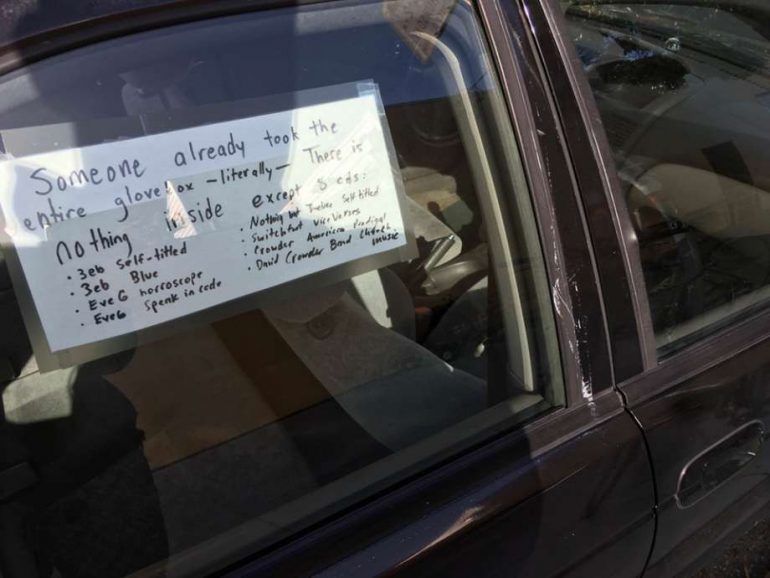 Someone already took the
entire glovebox -literally- There is
nothing inside except 8 cds:
• 3eb self-titled
• 3eb Blue
• Eve6 horroscope
• Eve6 speak in code
• Nothing but Thieves Self-titled
• Switchfoot Vice Verses
• Crowder American Prodigal
• David Crowder Band Church
music